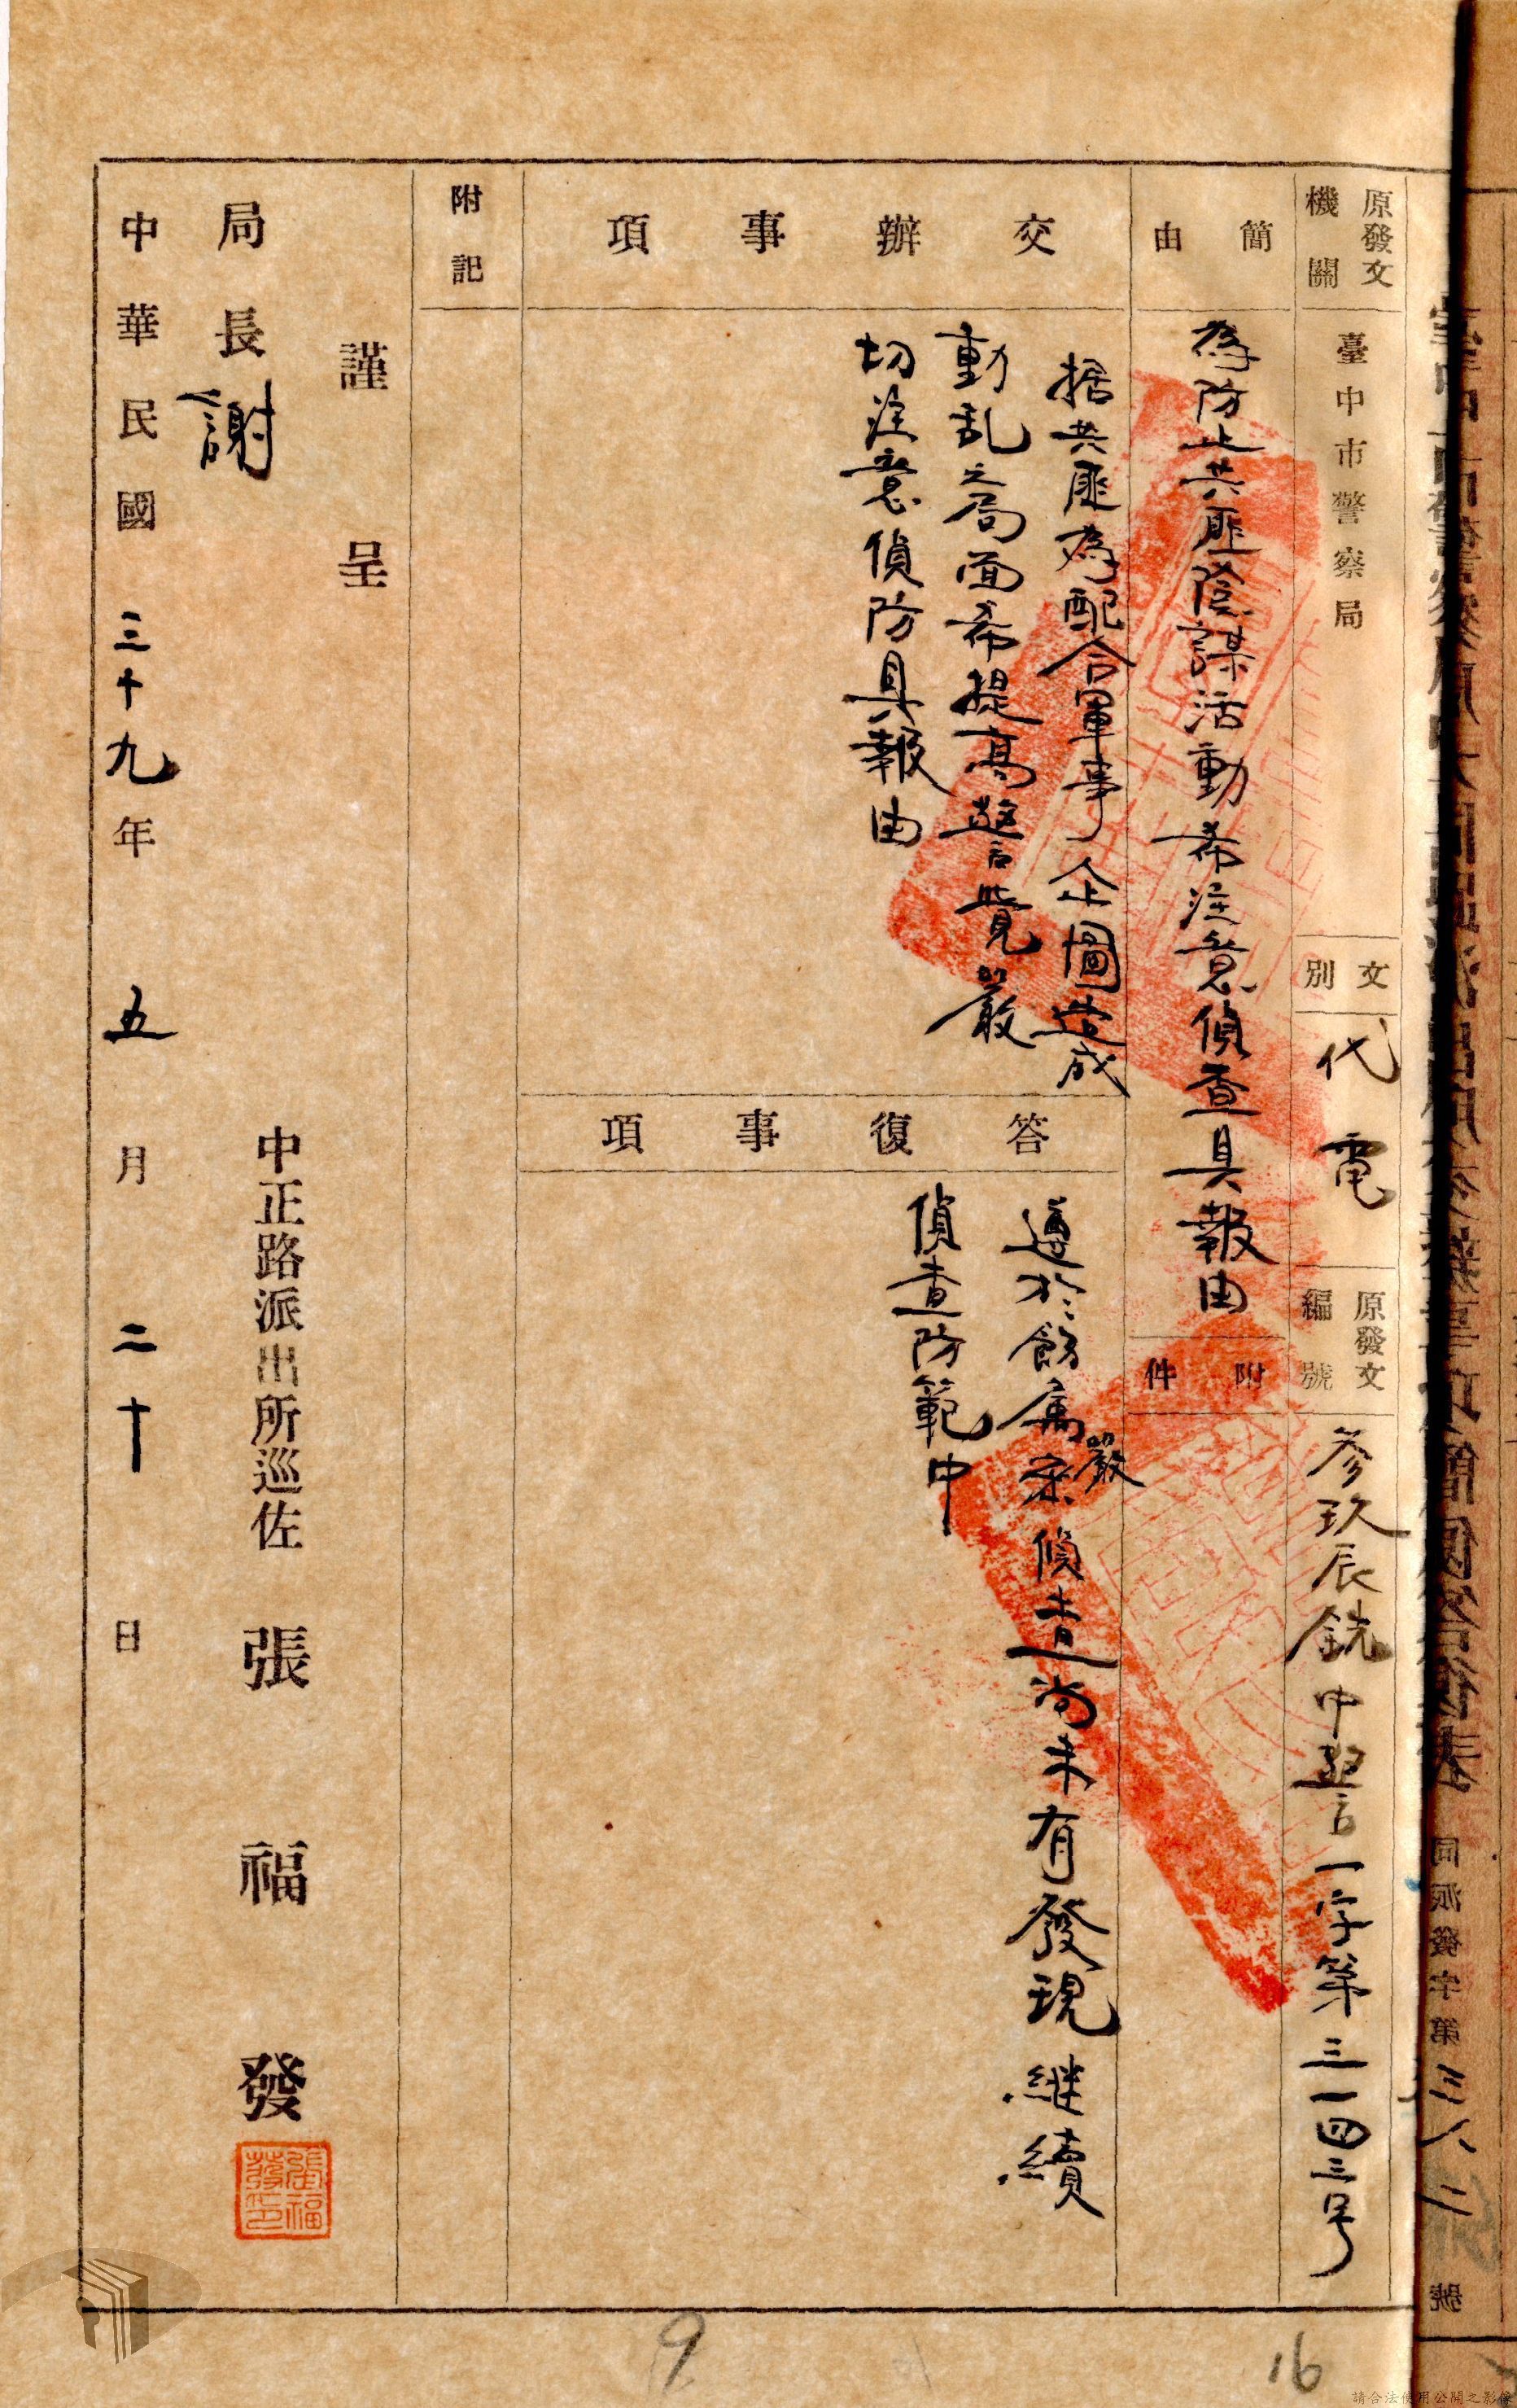 原發文機關
臺中市警察局
文別
代電
原發文編號
參玖辰銑中警一字第三一四三号
簡由
為防止共匪陰謀活動希注意偵查具報由
附件
交辦事項
据共匪為配合軍事企圖造成
動乱之局面希提高警覺嚴
切注意偵防具報由
答復事項
遵於飭屬嚴密偵查尚未有發現継續
偵查防範中
附記
謹呈
局長謝
中正路派出所巡佐 張福發
張福發印
中華民國三十九年五月二十日
同派發字第三八二號
9
16
請合法使用公開之影像